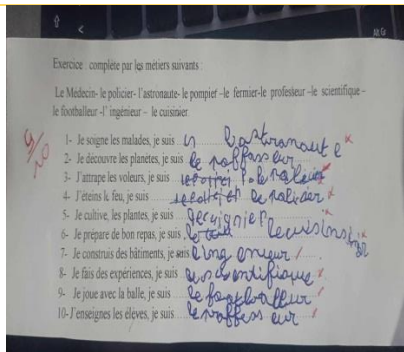 Exercice : complète par les métiers suivants :
Le Medecin- le policier- l'astronaute- le pompier –le fermier-le professeur –le scientifique –
le footballeur -l' ingénieur – le cuisinier
9/20
1- Je soigne les malades, je suis l'astronaute
2- Je découvre les planètes, je suis le proffasseur
3- J'attrape les voleurs, je suis
4- J'éteins le feu, je suis le polisier
5- Je cultive, les plantes, je suis
6- Je prépare de bon repas, je suis
7- Je construis des bâtiments, je suis l'ingenieur
8- Je fais des expériences, je suis le scientifique
9- Je joue avec la balle, je suis le footballeur
10- J'enseignes les élèves, je suis le proffesseur